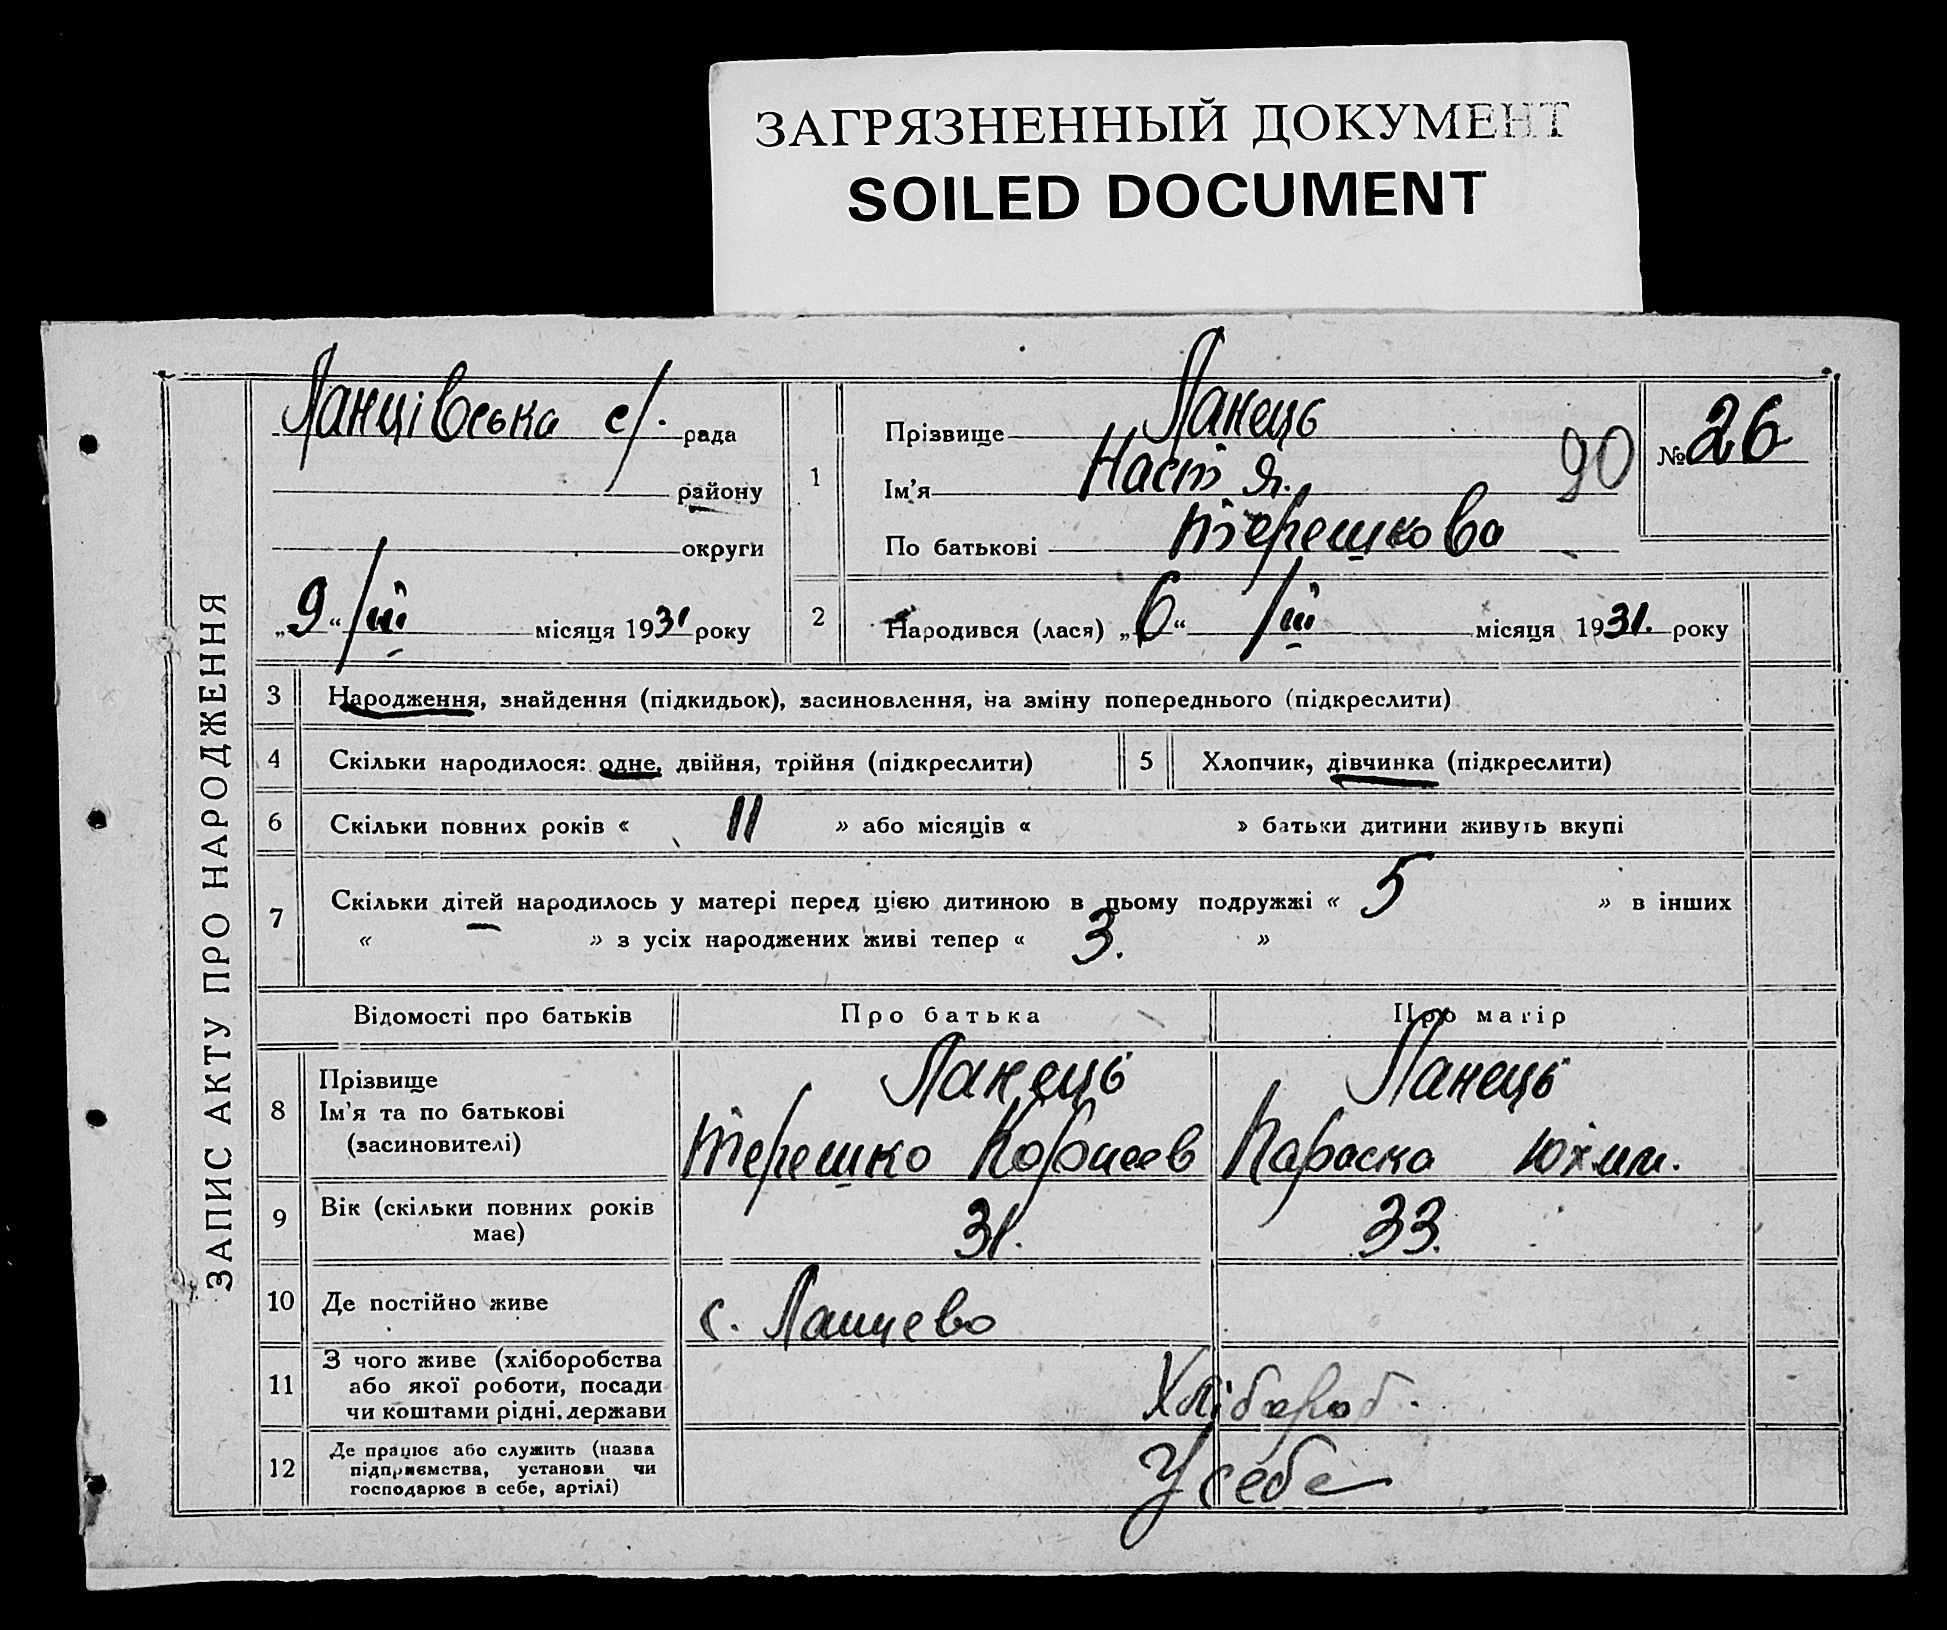 ЗАГРЯЗНЕННЫЙ ДОКУМЕНТ
SOILED DOCUMENT
ЗАПИС АКТУ ПРО НАРОДЖЕННЯ
Ланцівська с/. рада
району
округи
„9“/III місяця 1931 року
1 Прізвище Ланець
Ім’я Настя. 90
По батькові Терешкова
№ 26
2 Народився (лася) „6“ /III місяця 1931. року
3 Народження, знайдення (підкидьок), засиновлення, на зміну попереднього (підкреслити)
4 Скільки народилося: одне, двійня, трійня (підкреслити) 5 Хлопчик, дівчинка (підкреслити)
6 Скільки повних років « 11 » або місяців « » батьки дитини живуть вкупі
7 Скільки дітей народилось у матері перед цією дитиною в цьому подружжі « 5 » в інших
« — » з усіх народжених живі тепер « 3. »
Відомості про батьків Про батька Про матір
8 Прізвище Ланець Ланець
Ім’я та по батькові Терешко Корнеев Параска Юхим.
(засиновителі)
9 Вік (скільки повних років 31. 33.
має)
10 Де постійно живе с. Ланцево
11 З чого живе (хліборобства
або якої роботи, посади Хлібороб.
чи коштами рідні, держави
12 Де працює або служить (назва
підприємства, установи чи У себе
господарює в себе, артілі)